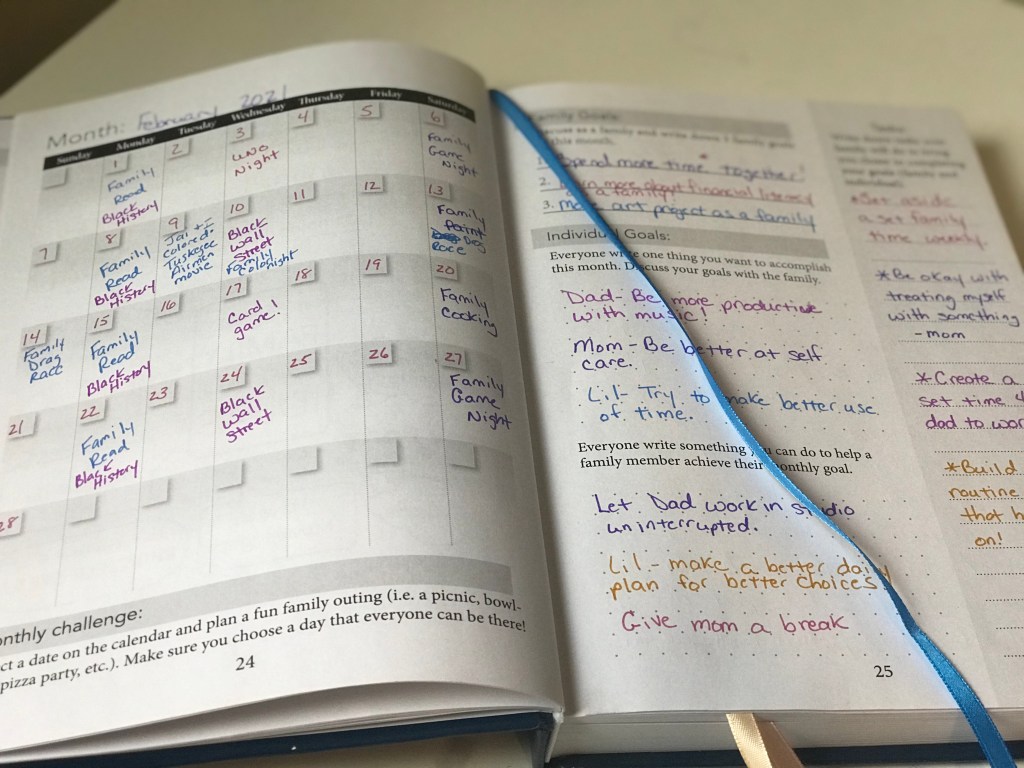 Month: February 2021
Sunday Monday Tuesday Wednesday Thursday Friday Saturday
1
Family
Read
Black
History
2
3
UNO
Night
4
5
6
Family
Game
Night
7
8
Family
Read
Black
History
9
Tuskegee
Airmen
movie
10
Black
Wall
Street
Family
11
12
13
Family
Paint
Race
14
Family
Drag
Race
15
Family
Read
Black
History
16
17
Card
game!
18
19
20
Family
Cooking
21
22
Family
Read
Black
History
23
24
Black
Wall
Street
25
26
27
Family
Game
Night
28
onthly challenge:
ct a date on the calendar and plan a fun family outing (i.e. a picnic, bowl-
pizza party, etc.). Make sure you choose a day that everyone can be there!
24
Family Goals:
as a family and write down 3 family goals
this month.
1. Spend more time together!
2. more about financial literacy
as a family
3. Make art project as a family
Individual Goals:
Everyone write one thing you want to accomplish
this month. Discuss your goals with the family.
Dad- Be more productive
with music!
Mom- Be better at self
care.
Lil- Try to make better use
of time.
Everyone write something you can do to help a
family member achieve their monthly goal.
Let Dad work in studio
uninterrupted.
Lil- make a better daily
plan for better choices
Give mom a break
25
*Set aside
a set family
time weekly.
*Be okay with
treating myself
with something
- mom
*Create a
set time 4
dad to wor
*Build
routine
that h
on!